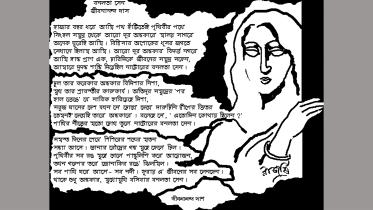 বনলতা সেন
জীবনানন্দ দাশ
হাজার বছর ধরে আমি পথ হাঁটিতেছি পৃথিবীর পথে
সিংহল সমুদ্র থেকে আরো দূর অন্ধকারে মালয় সাগরে
অনেক ঘুরেছি আমি । বিম্বিসার অশোকের ধূসর জগতে
সেখানে ছিলাম আমি । আরো দূর অন্ধকার বিদর্ভ নগরে
আমি ক্লান্ত প্রাণ এক, চারিদিকে জীবনের সমুদ্র সফেন,
আমারে দুদণ্ড শান্তি দিয়েছিল নাটোরের বনলতা সেন ।
চুল তার কবেকার অন্ধকার বিদিশার নিশা,
মুখ তার শ্রাবস্তীর কারুকার্য । অতিদূর সমুদ্রের 'পর
হাল ভেঙে যে নাবিক হারায়েছে দিশা,
সবুজ ঘাসের দেশ যখন সে চোখে দেখে দারুচিনি দ্বীপের ভিতর
তেমনই দেখেছি তারে অন্ধকারে । বলেছে সে, ' এতোদিন কোথায় ছিলেন ?'
পাখির নীড়ের মতো চোখ তুলে নাটোরের বনলতা সেন ।
সমস্ত দিনের শেষে শিশিরের শব্দের মতন
সন্ধ্যা আসে । ডানার রৌদ্রের গন্ধ মুছে ফেলে চিল ।
পৃথিবীর সব রঙ মুছে গেলে পাণ্ডুলিপি করে আয়োজন,
তখন গল্পের তরে জোনাকির রঙে ঝিলমিল ।
সব পাখি ঘরে আসে – সব নদী । ফুরায় এ জীবনের সব লেনদেন ।
থাকে শুধু অন্ধকার, মুখোমুখি বসিবার বনলতা সেন ।
জীবনানন্দ দাশ